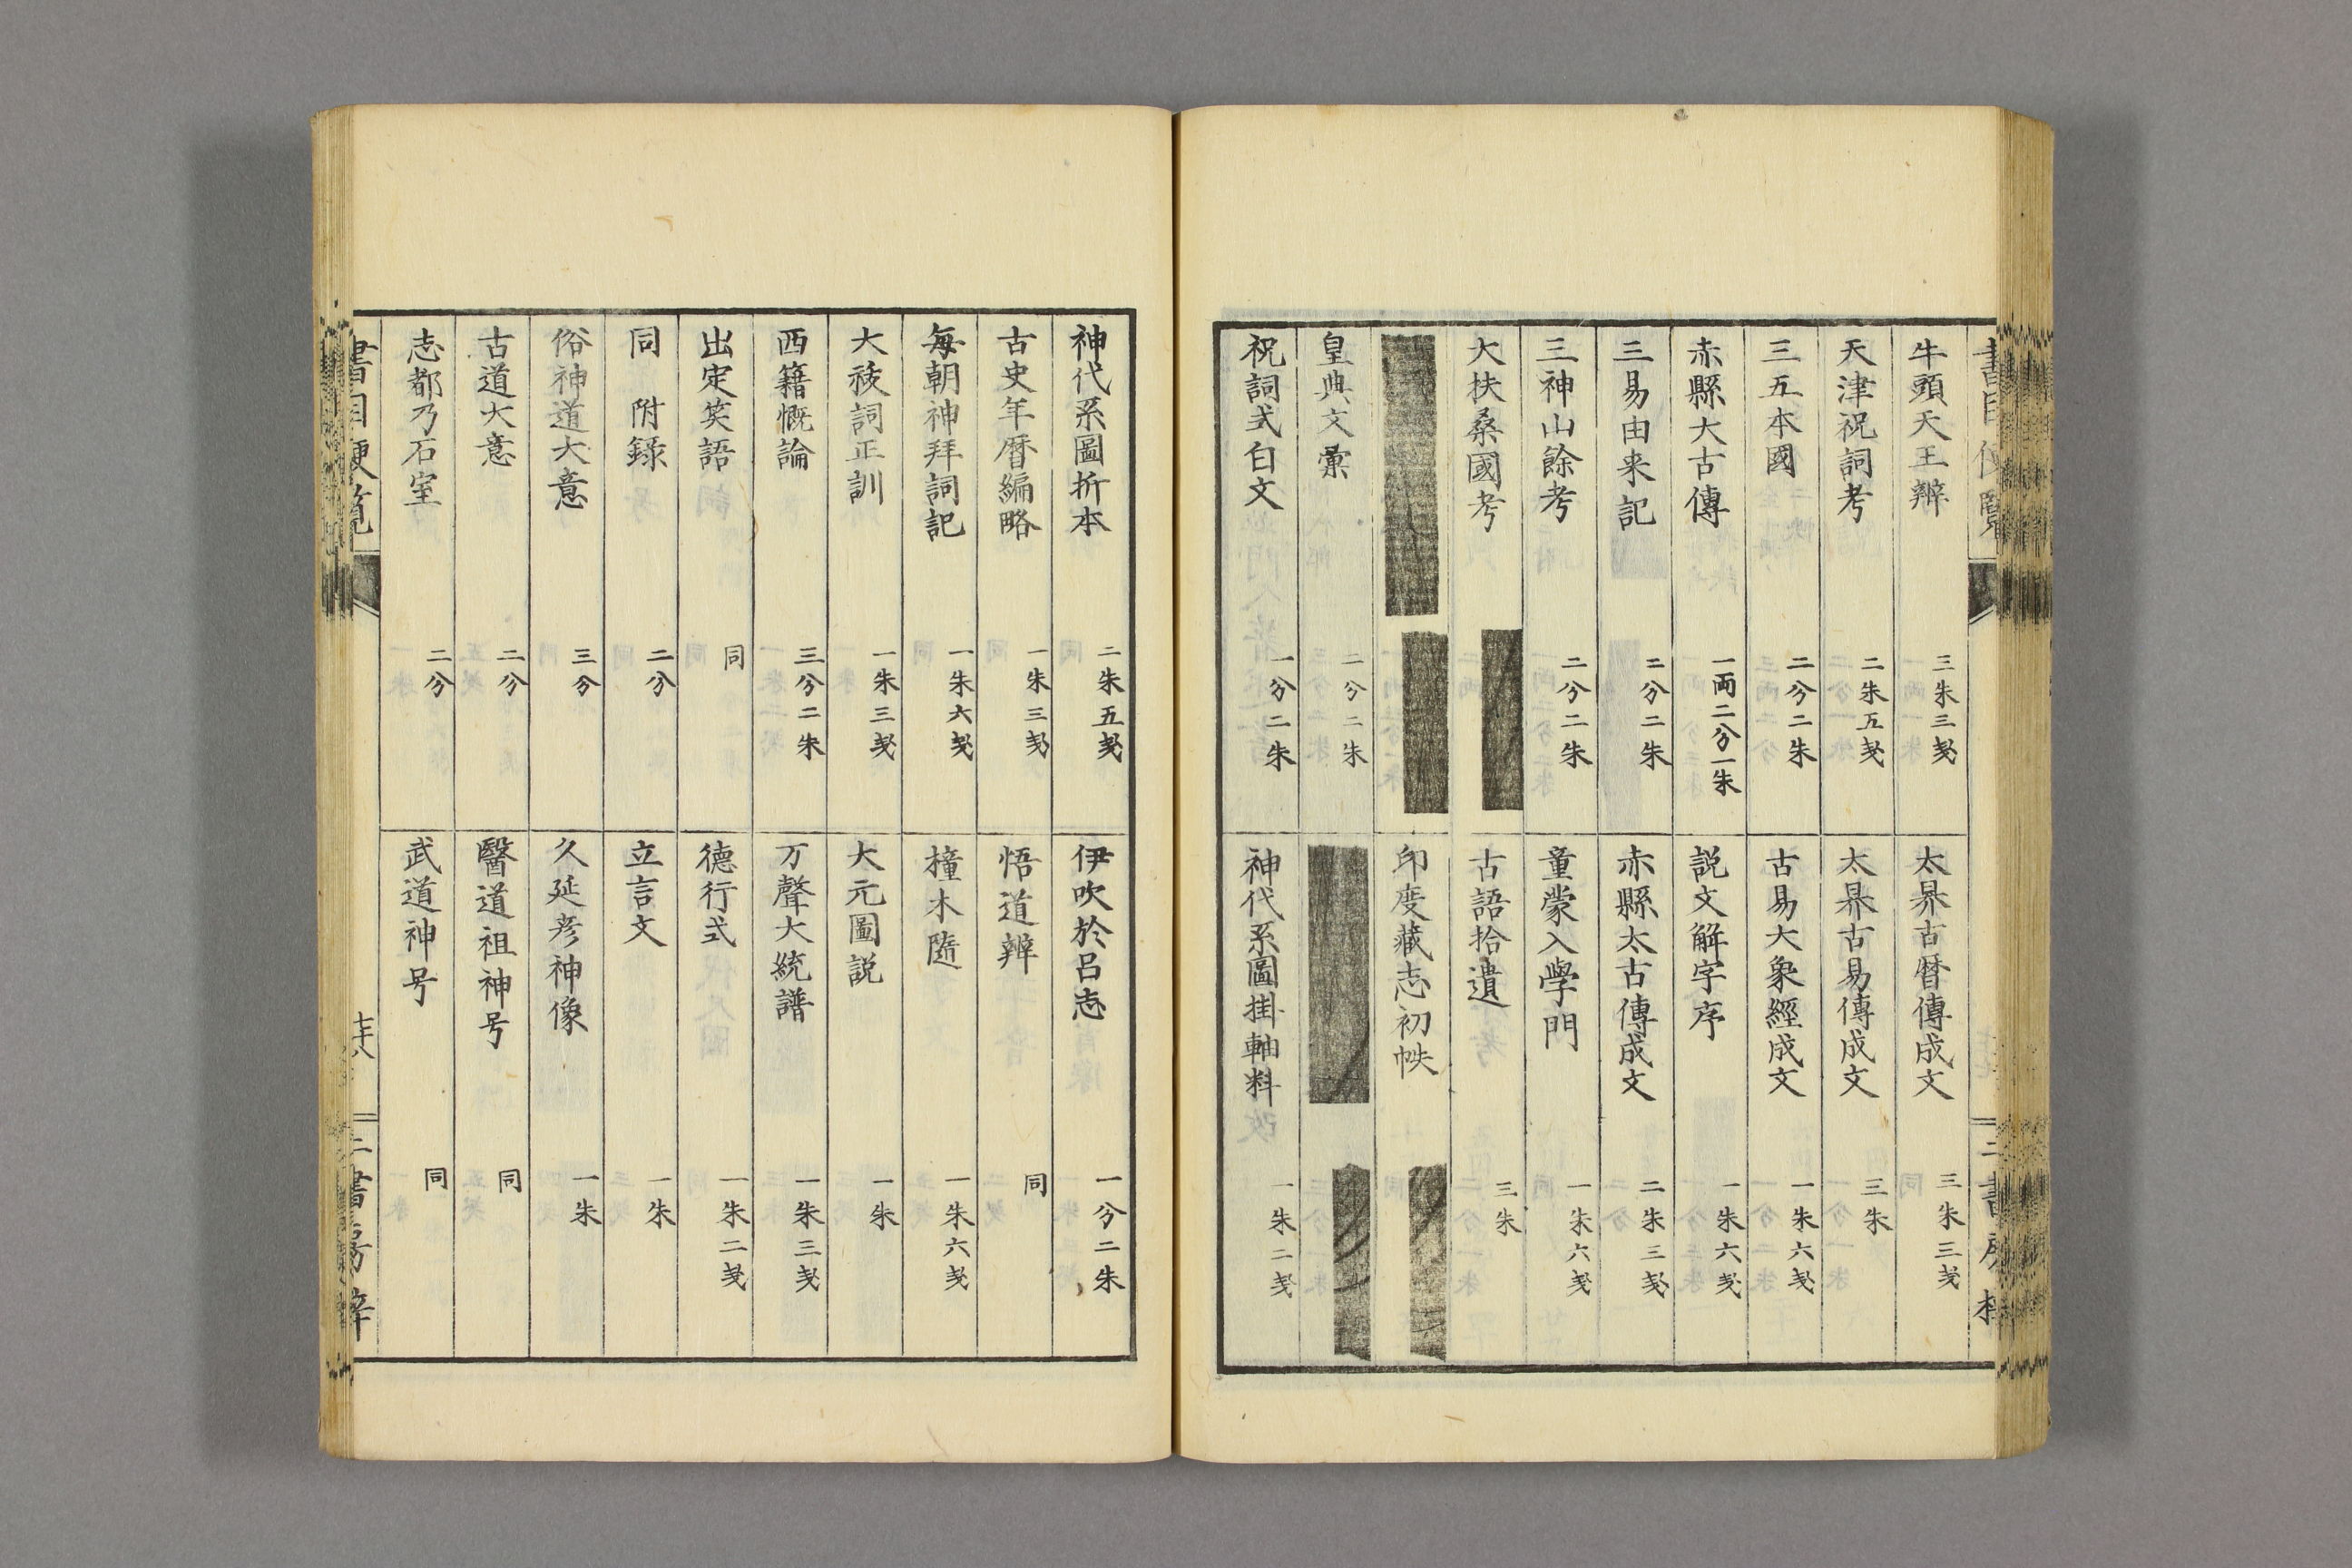 牛頭天王辨 三朱三匁
天津祝詞考 二朱五匁
三五本國 二分二朱
赤縣太古傳 一両二分一朱
三易由来記 二分二朱
三神山餘考 二分二朱
大扶桑國考
皇典文彙 二分二朱
祝詞式白文 一分二朱
太昦古暦傳成文 三朱三匁
太昦古易傳成文 三朱
古易大象經成文 一朱六匁
説文解字序 一朱六匁
赤縣太古傳成文 二朱三匁
童蒙入學門 一朱六匁
古語拾遺 三朱
印度藏志初帙
神代系圖掛軸料 一朱二匁
神代系圖折本 二朱五匁
古史年暦編略 一朱三匁
毎朝神拜詞記 一朱六匁
大祓詞正訓 一朱三匁
西籍慨論 三分二朱
出定笑語 同
同 附錄 二分
俗神道大意 三分
古道大意 二分
志都乃石室 二分
伊吹於呂志 一分二朱
悟道辨 同
橦木隨 一朱六匁
大元圖説 一朱
万聲大統譜 一朱三匁
德行式 一朱二匁
立言文 一朱
久延彦神像 一朱
醫道祖神号 同
武道神号 同
書目便覧